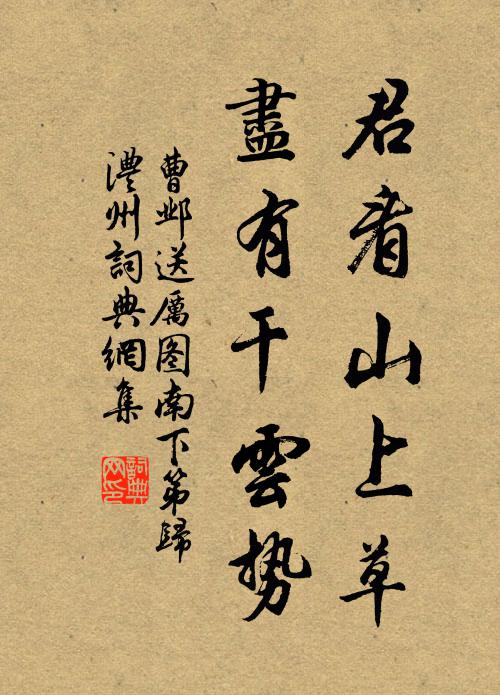 君看山上草
盡有干雲勢
曹邺送厲图南下第歸
澧州詞典網集
詞典网印